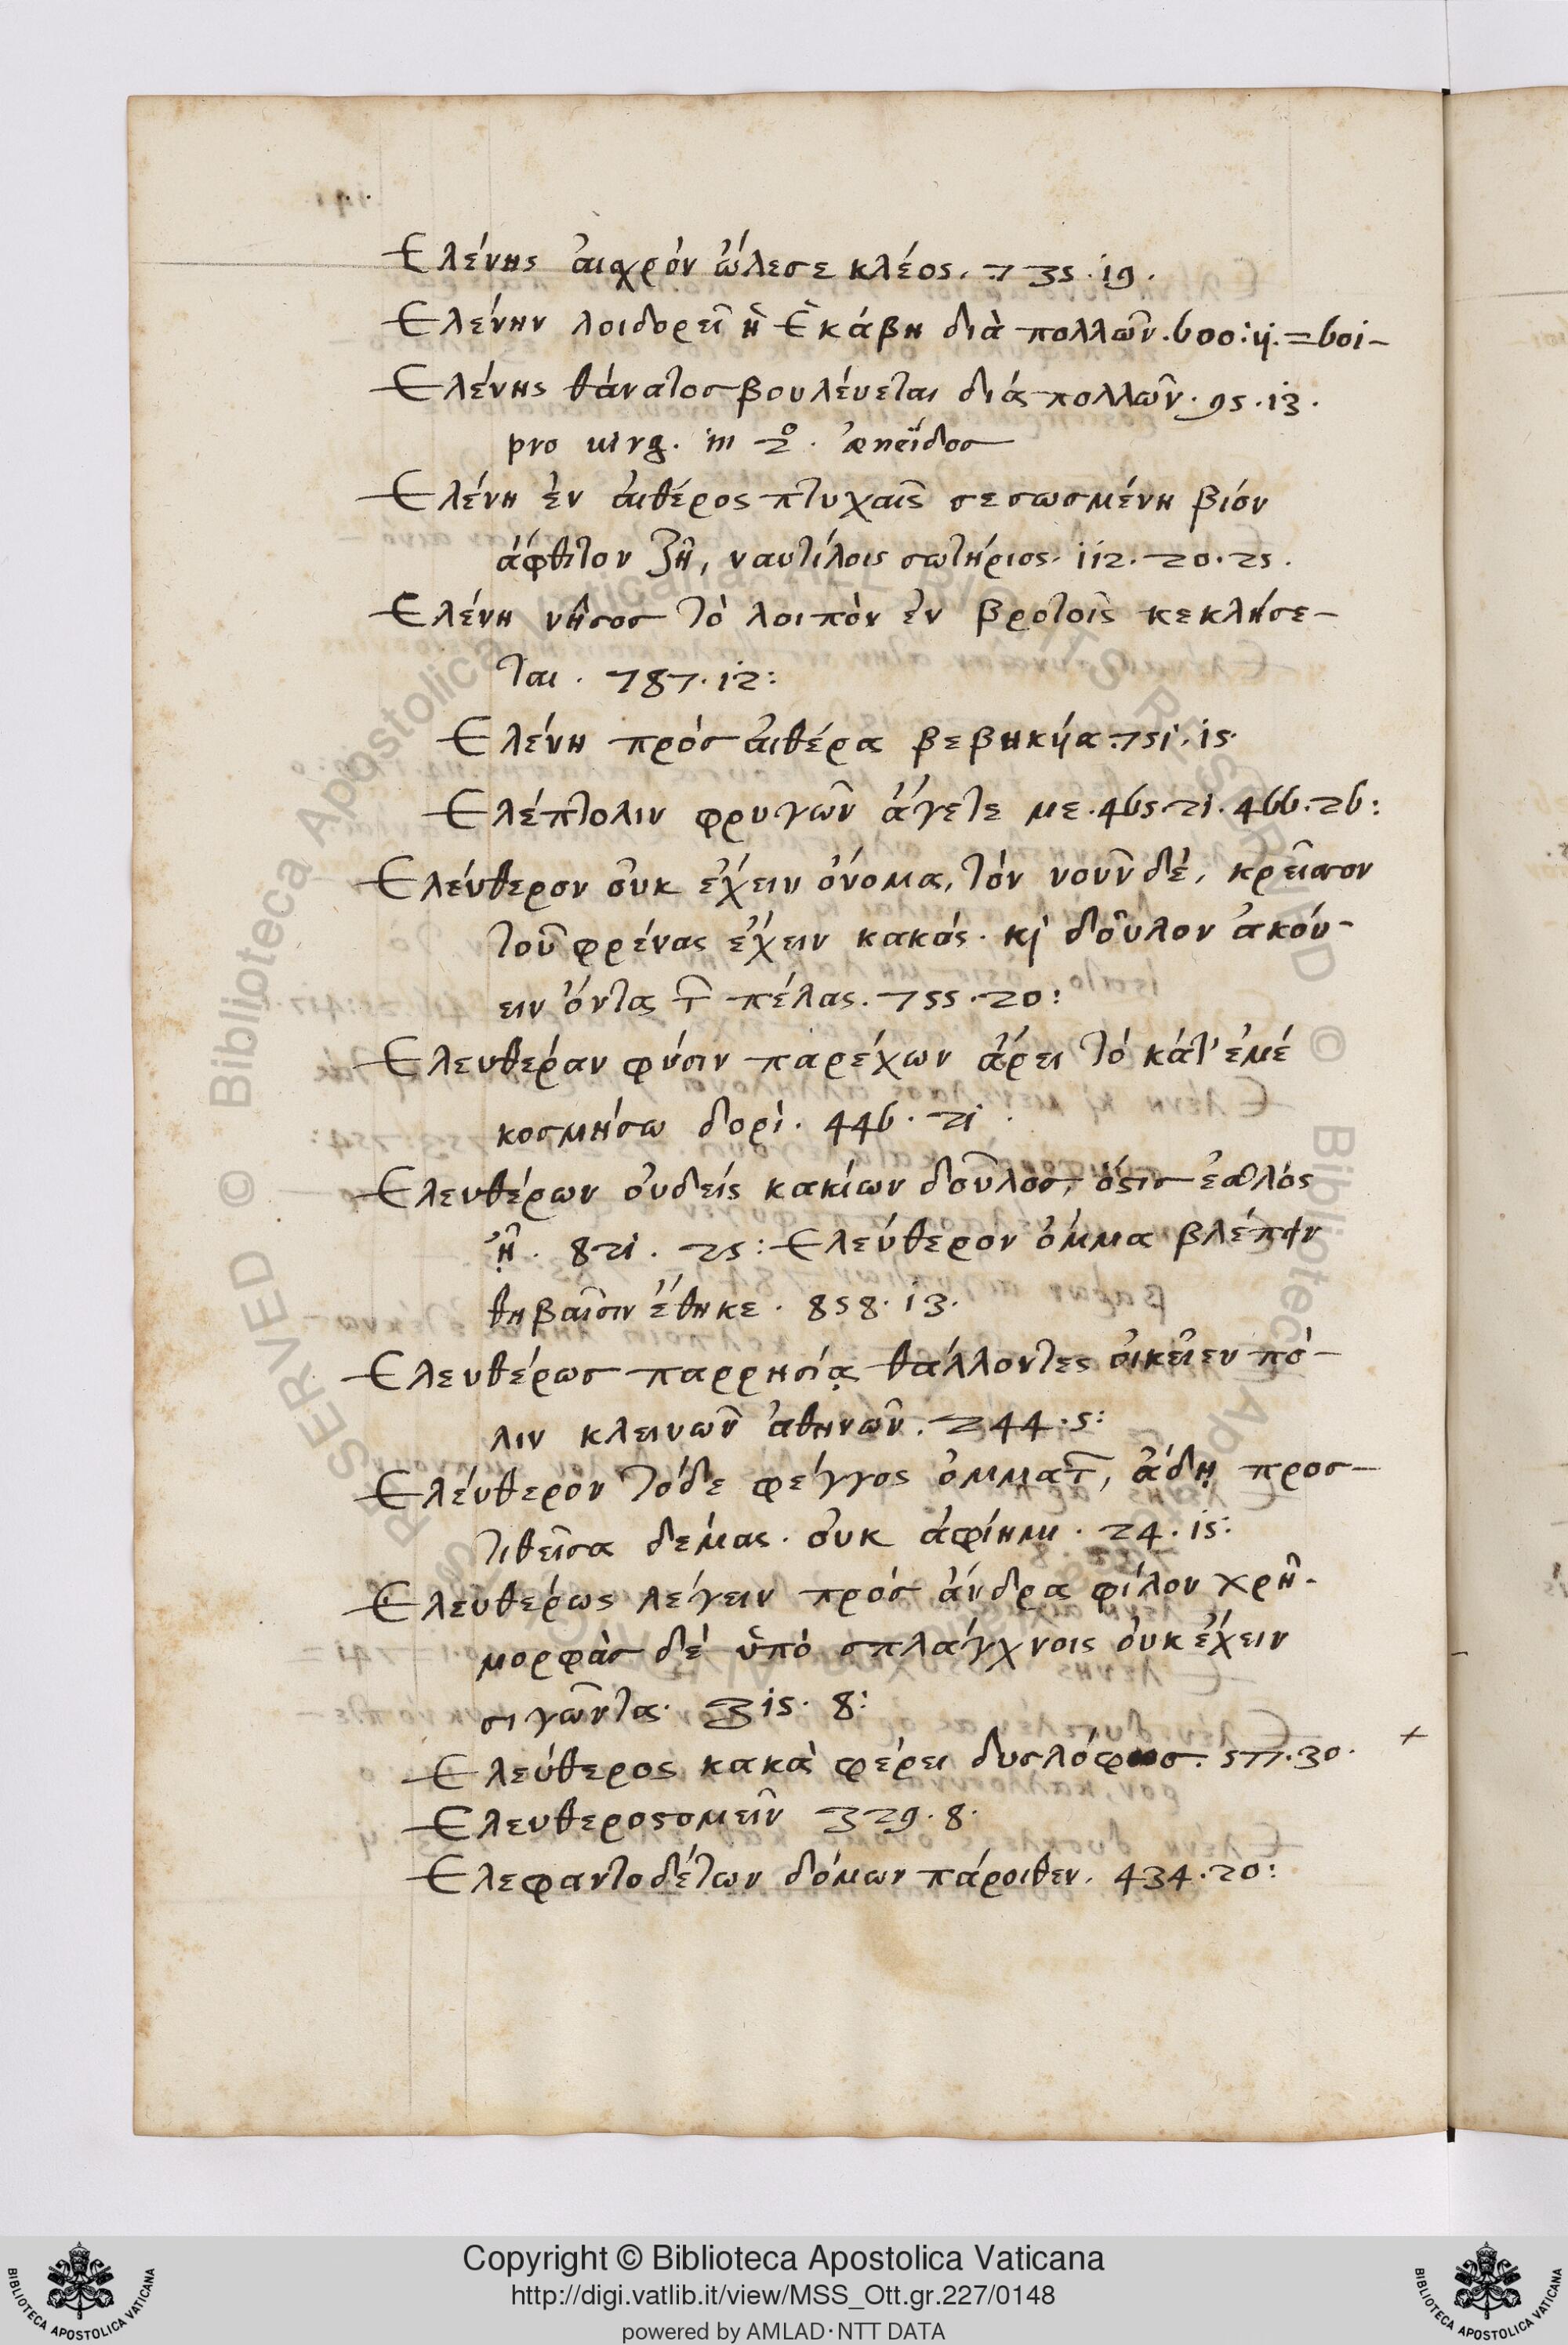 Ελένης αἰσχρόν ὤλεσε κλέος. 735.19.
Ελένην λοιδορεῖ ἡ Ἑκάβη διὰ πολλῶν. 600:ij.=601-
Ελένης θάνατος βουλέυεται διά πολλῶν. 95.13.
pro uirg. in 2º. æneΐdos
Ελένη ἐν ἀιθέρος πτυχαῖς σεσωσμένη βίον
ἀφθιτον ζῆ, ναυτίλοις σωτήριος. 112.20.25.
Ελένη νῆσος τὸ λοιπὸν ἐν βροτοῖς κεκλήσε-
ται. 787.12:
Ελένη πρός ἀιθέρα βεβηκύα. 751.15.
Ελέπτολιν φρυγῶν ἄγετε με. 465.21. 466.26:
Ελέυθερον ὀυκ ἔχειν ὀνομα, τόν νοῦν δέ, κρεῖσσον
τοῦ φρένας ἔχειν κακάς. κὶ δοῦλον ἀκόυ-
ειν ὄντας τ͂ πέλας. 755.20:
Ελευθεράν φύσιν παρέχων ἄρει τό κάτ' ἐμέ
κοσμήσω δορὶ. 446.21.
Ελευθέρων ὀυδείς κακίων δοῦλος, ὅςις ἐσθλός
ᾖ. 821.25: Ελεύθερον ὀμμα βλέπειν
θηβαῖσιν ἔθηκε. 858.13.
Ελευθέρως παρρησίᾳ θάλλοντες ὀικεῖεν πό-
λιν κλεινῶν ἀθηνῶν. 244.5:
Ελέυθερον τόδε φέγγος ὀμματ͂, ἅδῃ προσ-
τιθεῖσα δέμας. ὀυκ ἀφίημι. 24.15:
Ελευθέρως λέγειν πρός ἀνδρα φίλον χρῆ.
μορφὰς δέ ὑπὸ σπλάγχνοις ὀυκ ἔχειν
σιγῶντα. 315.8:
Ελεύθερος κακὰ φέρει δυσλόφως. 577.30.
Ελευθεροςομεῖν 329.8.
Ελεφαντοδέτων δόμων πάροιθεν. 434.20:
Copyright © Biblioteca Apostolica Vaticana
http://digi.vatlib.it/view/MSS_Ott.gr.227/0148
powered by AMLAD·NTT DATA